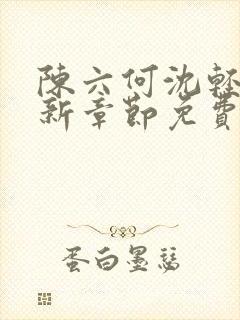 陳六何沈輕
新章節免費
蛋白墨瑟